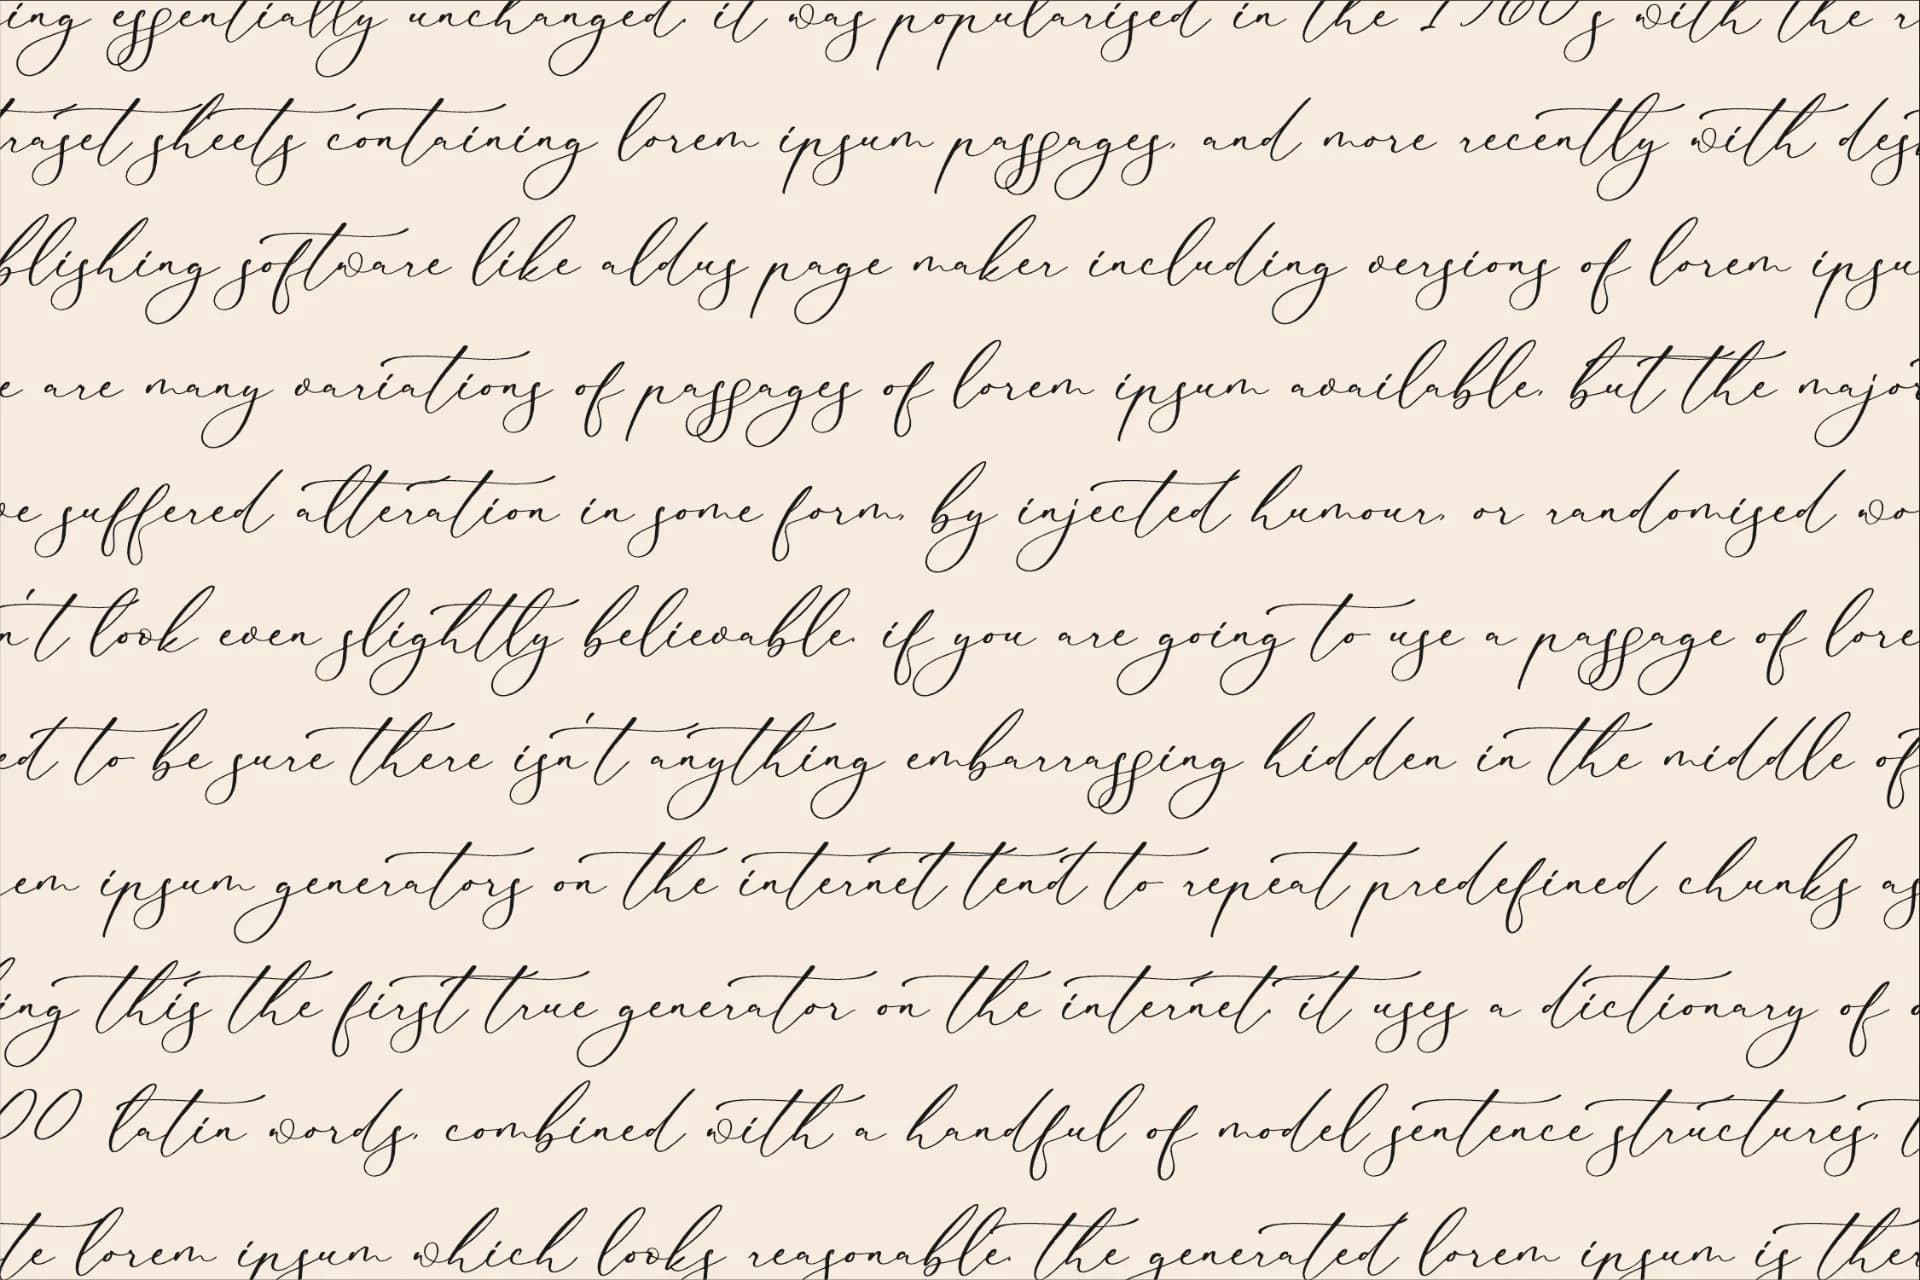 ing essentially unchanged. it was popularised in the 1960s with the r
traset sheets containing lorem ipsum passages. and more recently with desk
blishing software like aldus page maker including versions of lorem ipsu
e are many variations of passages of lorem ipsum available. but the major
ve suffered alteration in some form. by injected humour. or randomised wo
n't look even slightly believable. if you are going to use a passage of lore
ed to be sure there isn't anything embarrassing hidden in the middle of
em ipsum generators on the internet tend to repeat predefined chunks as
ing this the first true generator on the internet. it uses a dictionary of o
00 latin words. combined with a handful of model sentence structures. t
te lorem ipsum which looks reasonable. the generated lorem ipsum is ther